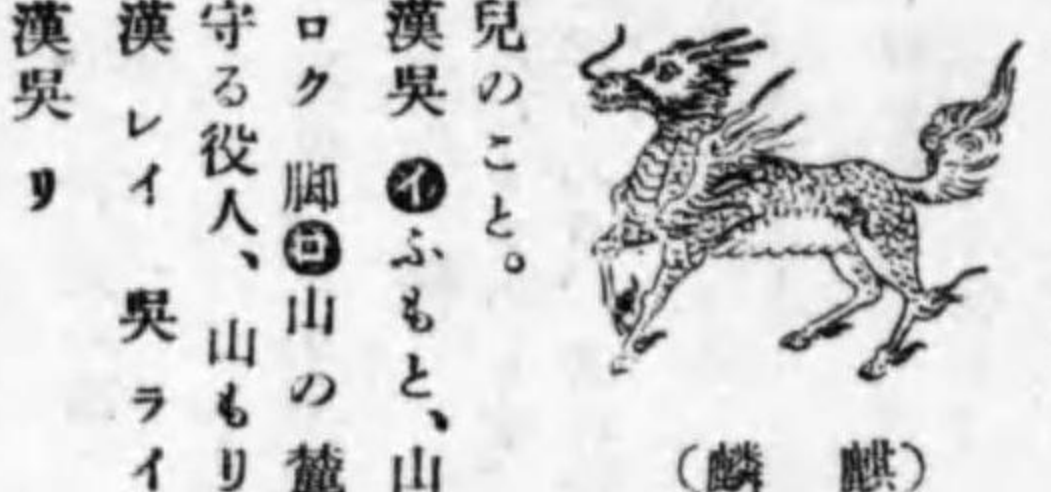 （麒麟）
兒のこと。
漢吳 ㋑ふもと、山
ロク 脚㋺山の麓
守る役人、山もり
漢 レイ 吳 ライ
漢吳 リ